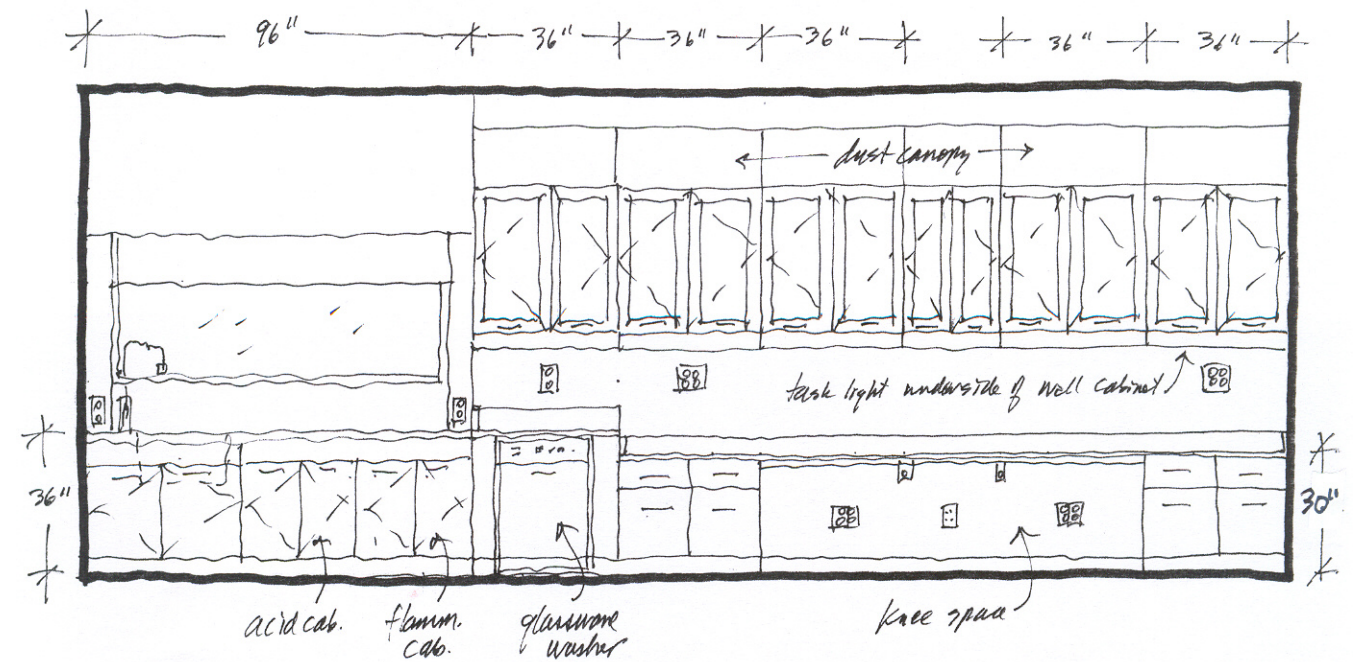 96" 36" 36" 36" 36" 36"
dust canopy
task light underside of wall cabinet
36"
30"
acid cab.
flamm.
cab.
glassware
washer
knee space